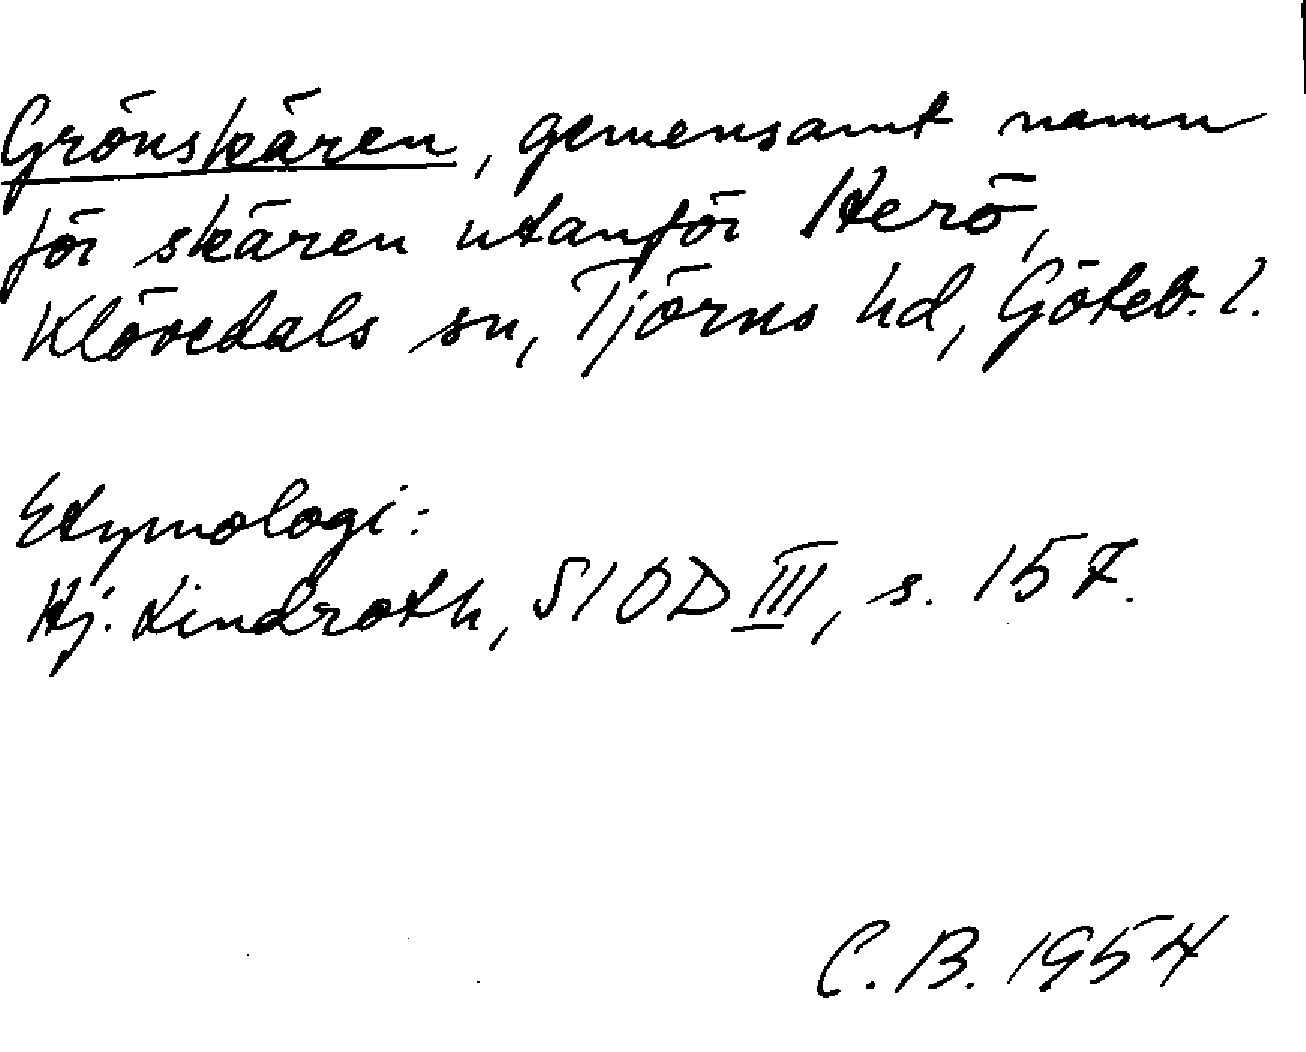 Grönskären, gemensamt namn
för skären utanför Herö,
Klövedals sn, Tjörns hd, Göteb. l.
Etymologi:
Hj. Lindroth, SIOD III, s. 157.
C. B. 1954